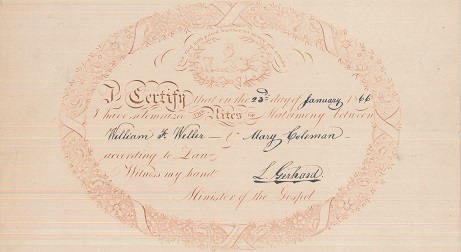 I Certify that on the 23d day of January 1866
I have solemnized the Rites of Matrimony between
William F. Weller — & Mary Coleman
according to Law,
Witness my hand L. Gerhard.
Minister of the Gospel